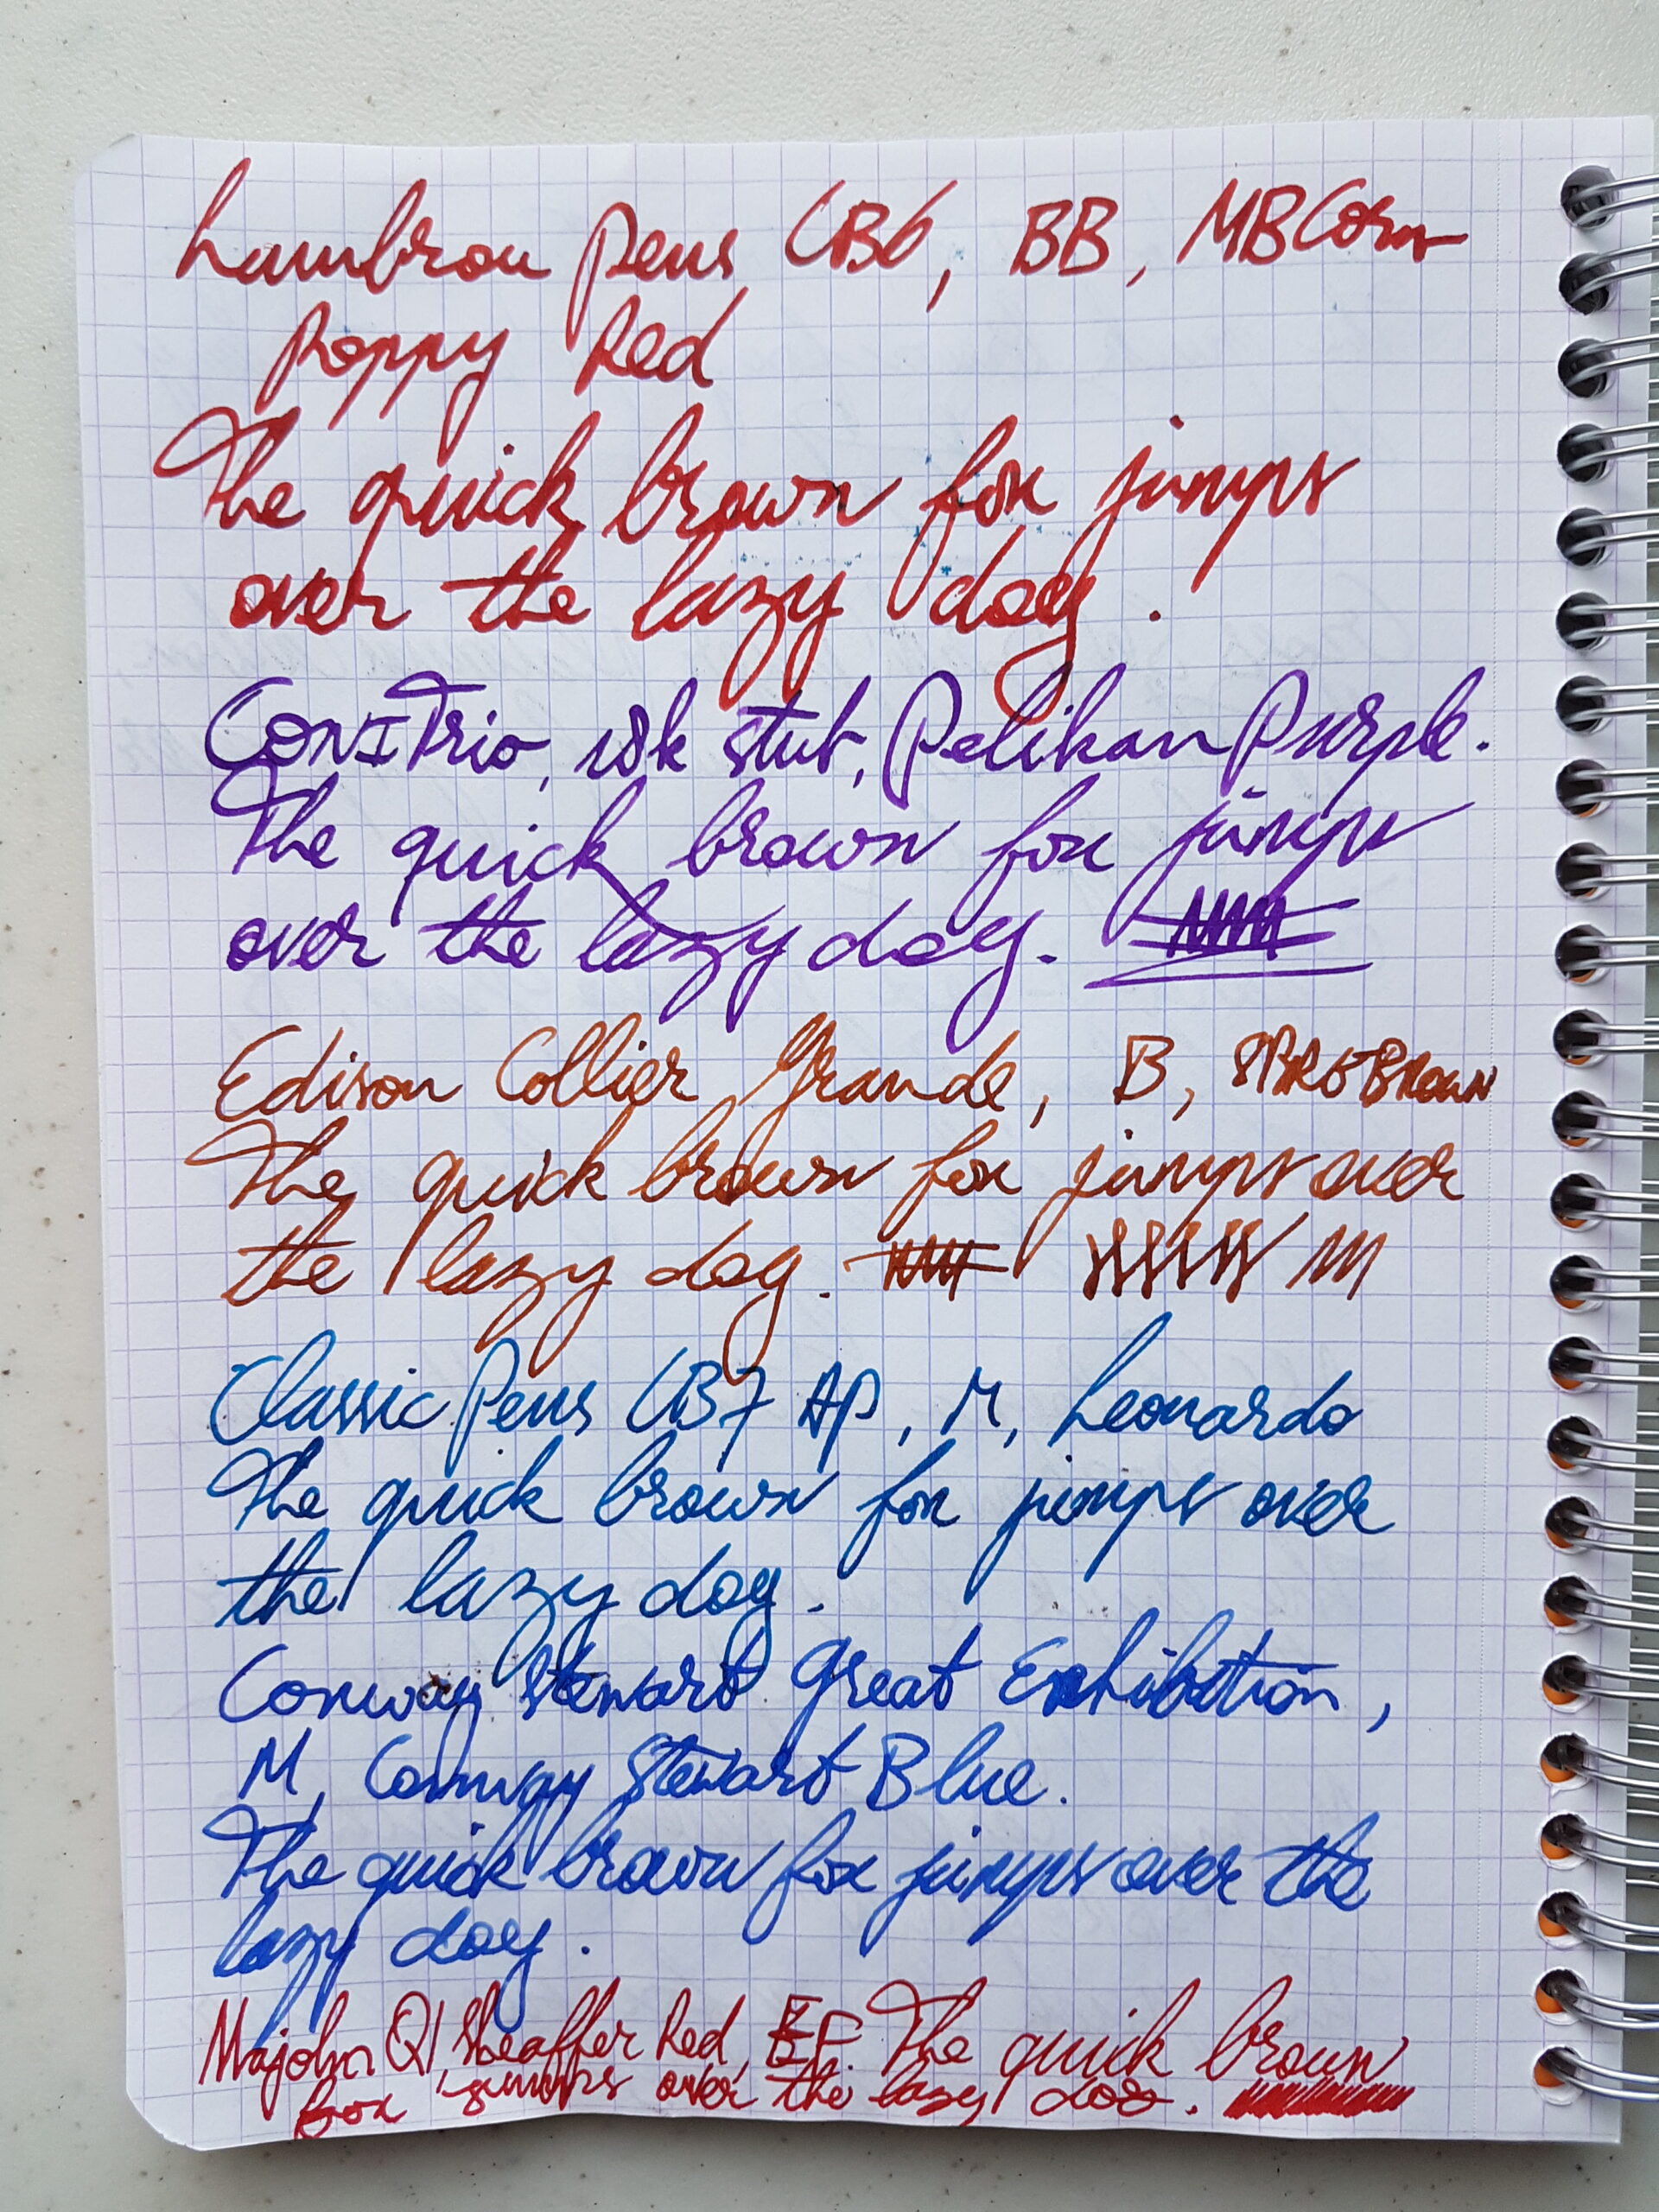 Lambrou Pens CB6, BB, MB Corn
Poppy Red
The quick brown fox jumps
over the lazy dog.
Trio, 18k stub, Pelikan Purple.
The quick brown fox jumps
over the lazy dog.
Edison Collier Grande, B, Brown
The quick brown fox jumps over
the lazy dog.
Classic Pens CB7 AP, M, Leonardo
The quick brown fox jumps over
the lazy dog.
Conway Stewart Great Exhibition,
M, Conway Stewart Blue.
The quick brown fox jumps over the
lazy dog.
Majohn Q1, Sheaffer Red, EF. The quick brown
fox jumps over the lazy dog.